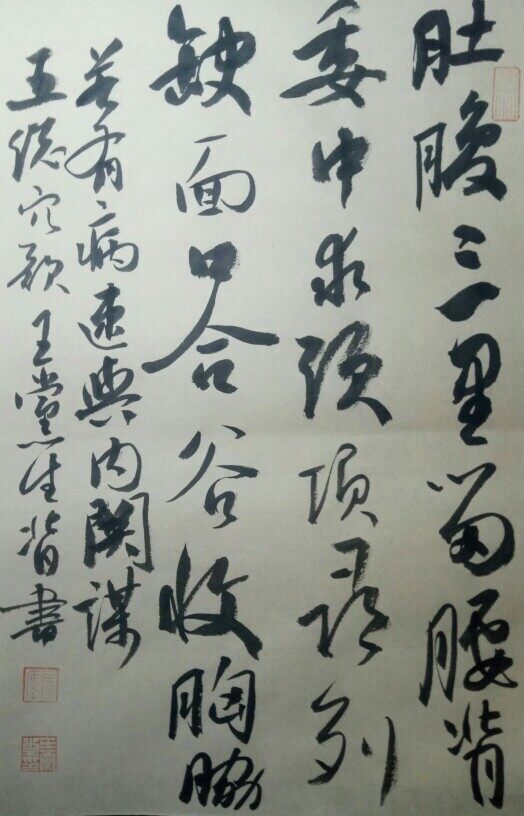 肚腹三里留腰背
委中求頭項尋列
缺面口合谷收胸脇
若有病速與内関謀
五總穴歌 王黨生背書